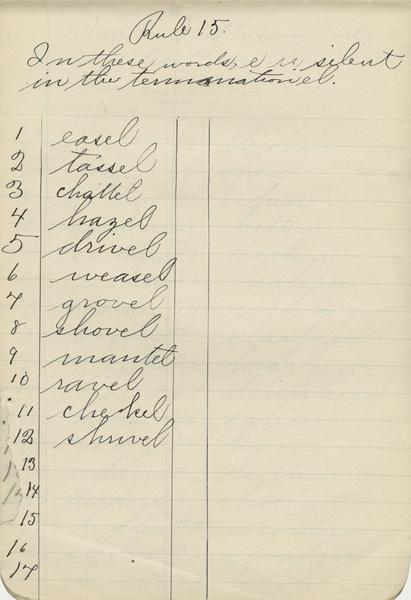 Rule 15.
In these words, e is silent
in the termination el.
1 easel
2 tassel
3 chattel
4 hazel
5 drivel
6 weasel
7 grovel
8 shovel
9 mantel
10 ravel
11
12 shrivel
13
14
15
16
17